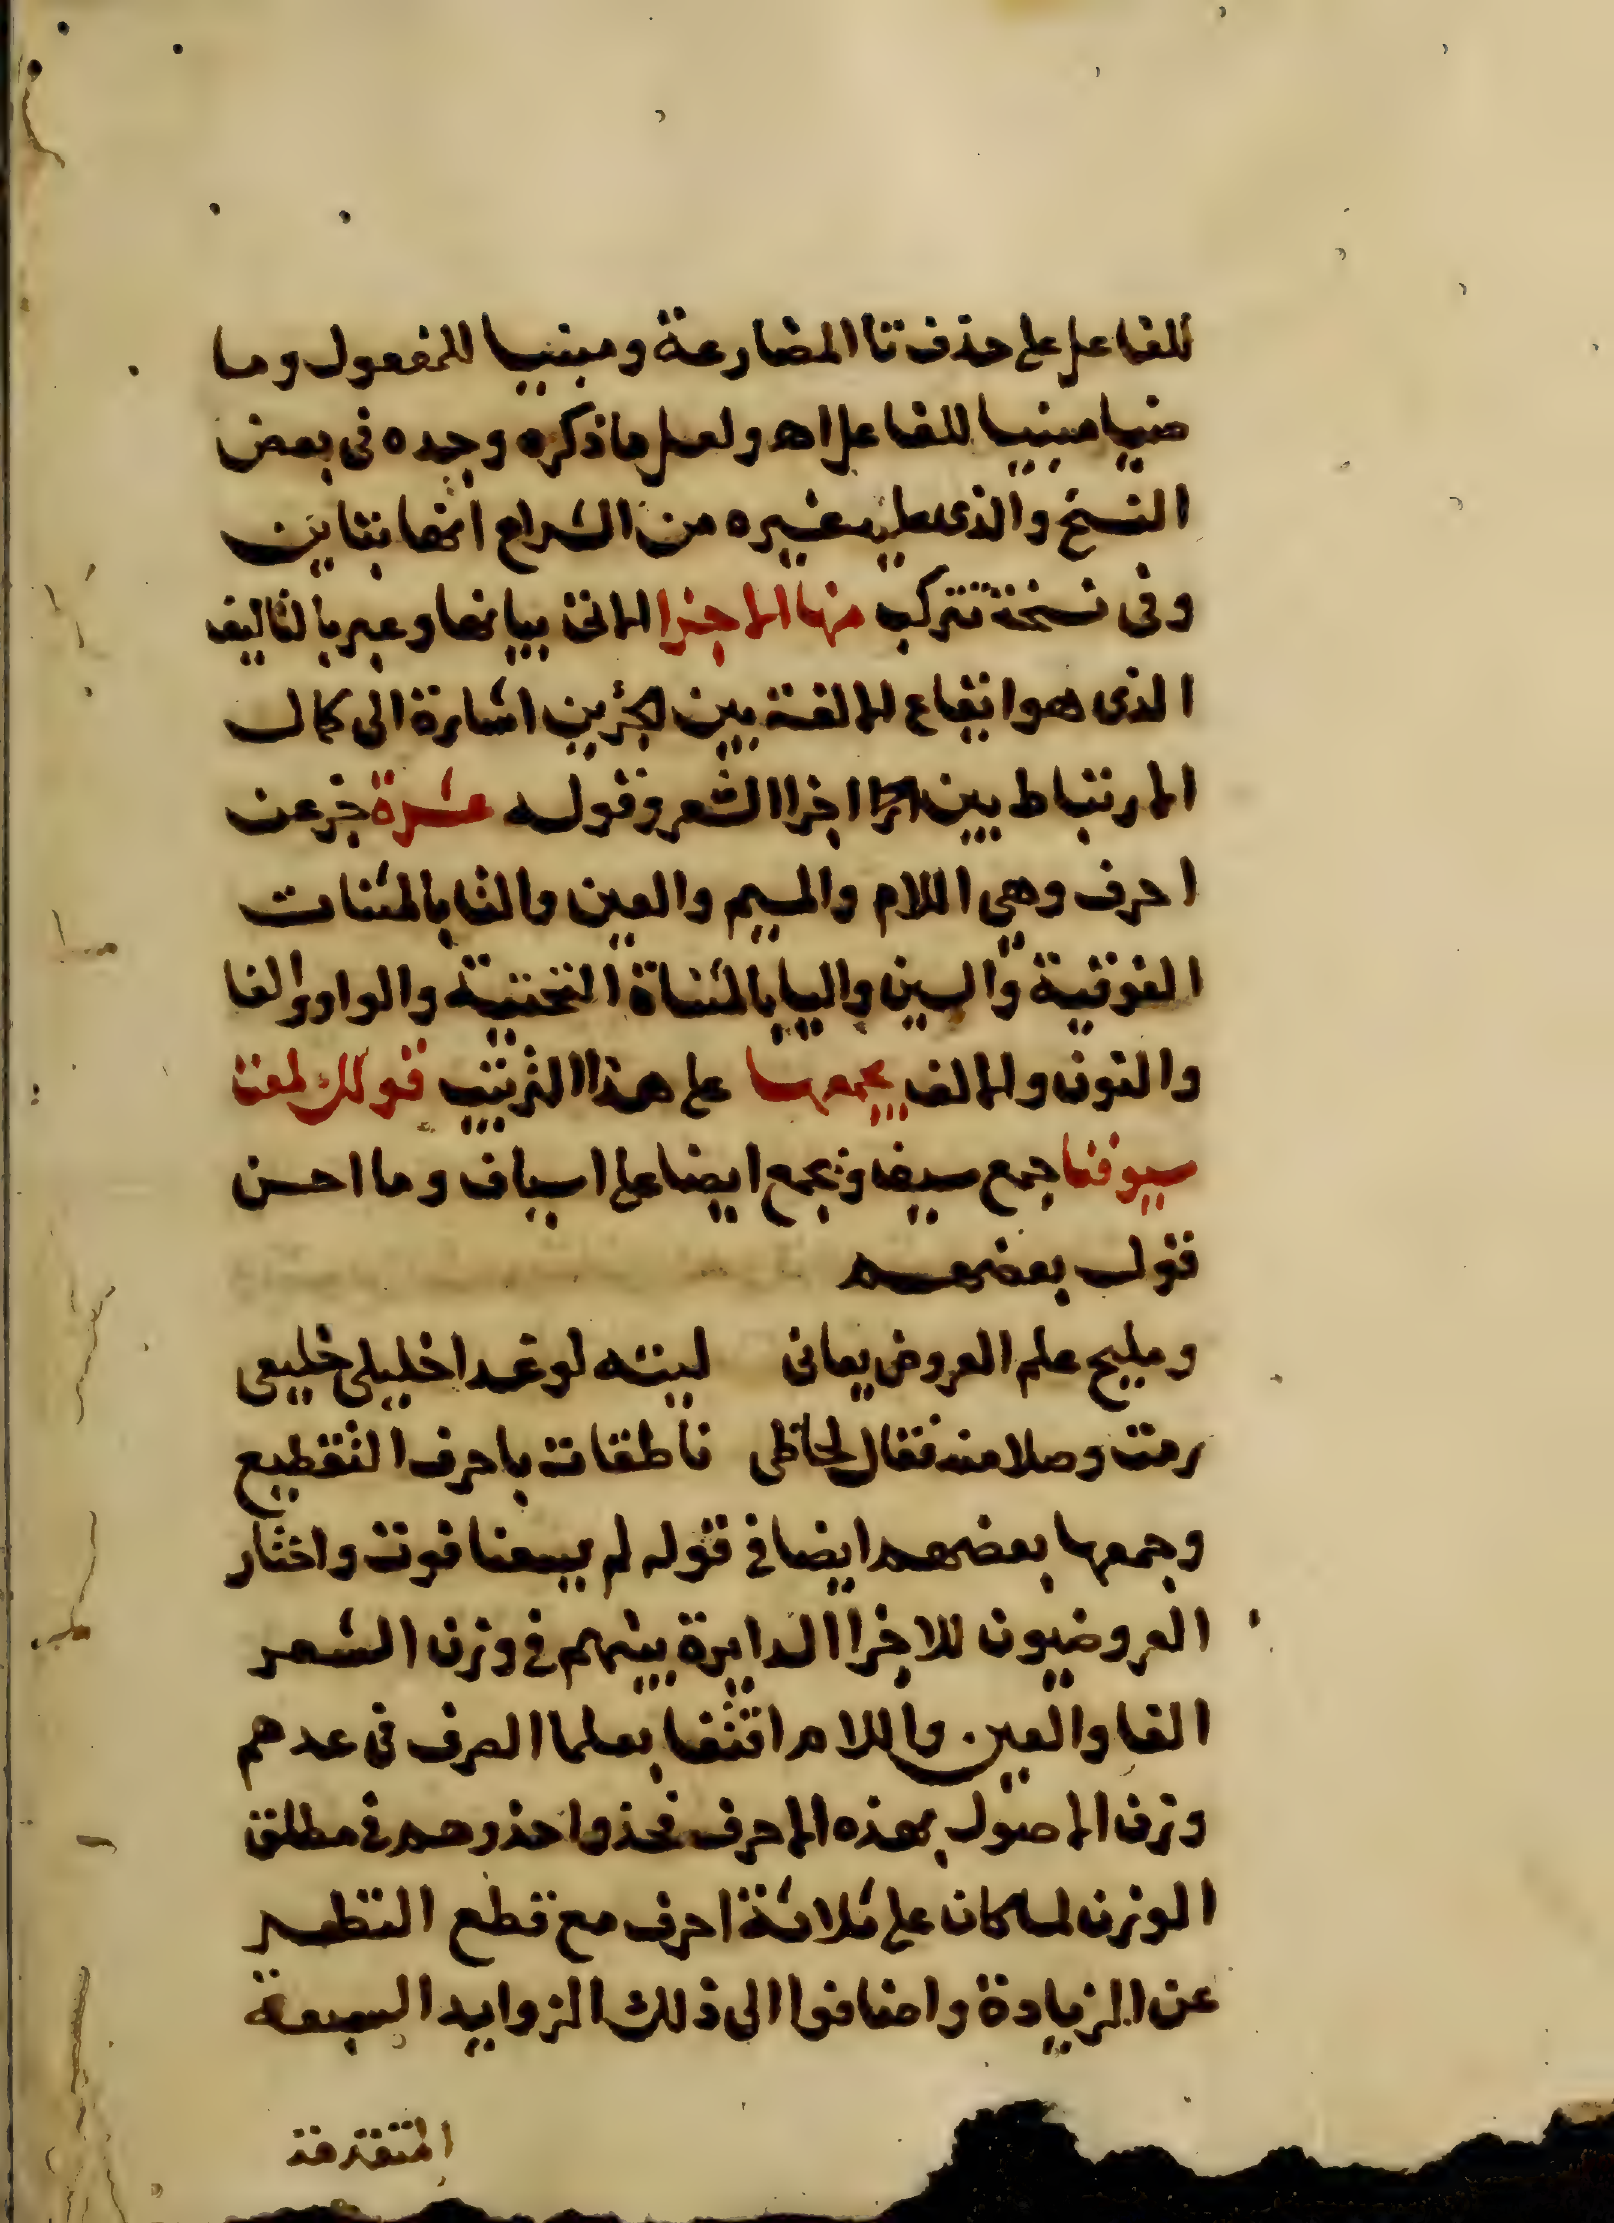 للفاعل على حذف تا المضارعة ومبنيا للمفعول وما
ضيا مبنيا للفاعل اه ولعل ما ذكره وجده في بعض
النسخ والذى عليه غيره من الشراح انها بتاين
وفى نسخة تتركب منها الاجزا الاتى بيانها وعبر بالتاليف
الذى هو ايقاع الالفة بين الجزين اشارة الى كمال
الارتباط بين اجزا الشعر وقوله عشرة خبر عن
احرف وهي اللام والميم والعين والتا بالمثنات
الفوقية والسين واليا بالمثناة التحتية والواو والفا
والنون والالف يجمعها على هذا الترتيب قولك لمعت
سيوفنا جمع سيف ويجمع ايضا على اسياف وما احسن
قول بعضهم
ومليح علم العروض يعانى ليته لو غدا خليلى خليعى
رمت وصلا منه فقال لحاظى ناطقات باحرف التقطيع
وجمعها بعضهم ايضا في قوله لم يسعنا فوت واختار
العروضيون للاجزا الدايرة بينهم في وزن الشعر
الفا والعين واللام اقتفا بعلما الصرف في عدهم
وزن الاصول بهذه الاحرف فحذوا حذوهم في مطلق
الوزن لما كان على ثلاثة احرف مع قطع النظر
عن الزيادة واضافوا الى ذلك الزوايد السبعة
المتفرقة